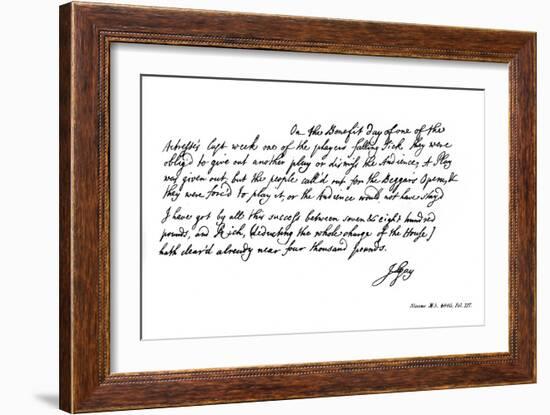 On the Benefit day of one of the
Actresse's last week one of the players falling sick they were
oblig'd to give out another play or dismiss the Audience, A Play
was given out, but the people call'd out for the Beggar's Opera, &
they were forc'd to play it, or the Audience would not have stayd
I have got by all this success between seven & eight hundred
pounds, and Rich, (deducting the whole charge of the House)
hath clear'd already near four thousand pounds.
J Gay
Sloane MS. 4046, Fol.